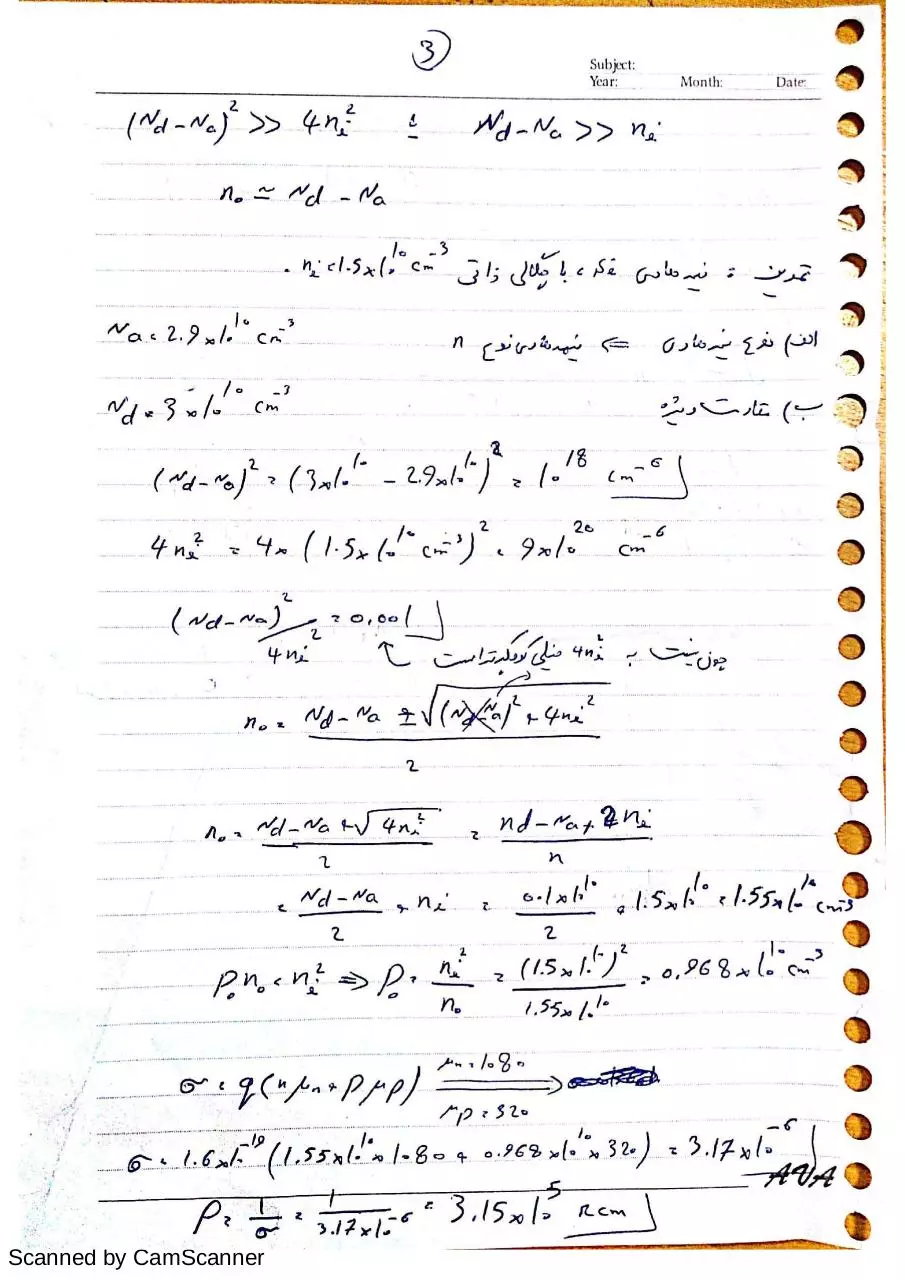 3
Subject:
Year: Month: Date:
(Nd-Na)² >> 4ni² یا Nd-Na >> ni
n₀ ≃ Nd - Na
تمرین : نیمه هادی با چگالی ذاتی ni = 1.5×10¹⁰ cm⁻³ .
الف) نوع نیمه هادی ⇐ نیمه هادی نوع n Na = 2.9×10¹⁰ cm⁻³
ب) مقاومت ویژه Nd = 3×10¹⁰ cm⁻³
(Nd-Na)² = (3×10¹⁰ - 2.9×10¹⁰)² = 10¹⁸ cm⁻⁶
4ni² = 4×(1.5×10¹⁰ cm⁻³)² = 9×10²⁰ cm⁻⁶
(Nd-Na)²/4ni² = 0,001
چون نسبت به 4ni² خیلی کوچکتر است
n₀ = (Nd-Na ± √((Nd-Na)² + 4ni²))/2
n₀ = (Nd-Na + √4ni²)/2 = (nd-Na+2ni)/n
= (Nd-Na)/2 + ni = (0.1×10¹⁰)/2 + 1.5×10¹⁰ = 1.55×10¹⁰ cm⁻³
P₀n₀ = ni² ⇒ P₀ = ni²/n₀ = (1.5×10¹⁰)²/1.55×10¹⁰ = 0,968×10¹⁰ cm⁻³
σ = q(nμn + Pμp) μn=1080 ⟹ μp=320
σ = 1.6×10⁻¹⁹(1.55×10¹⁰×1080 + 0.968×10¹⁰×320) = 3.17×10⁻⁶
AVA
ρ = 1/σ = 1/3.17×10⁻⁶ = 3.15×10⁵ Ωcm
Scanned by CamScanner